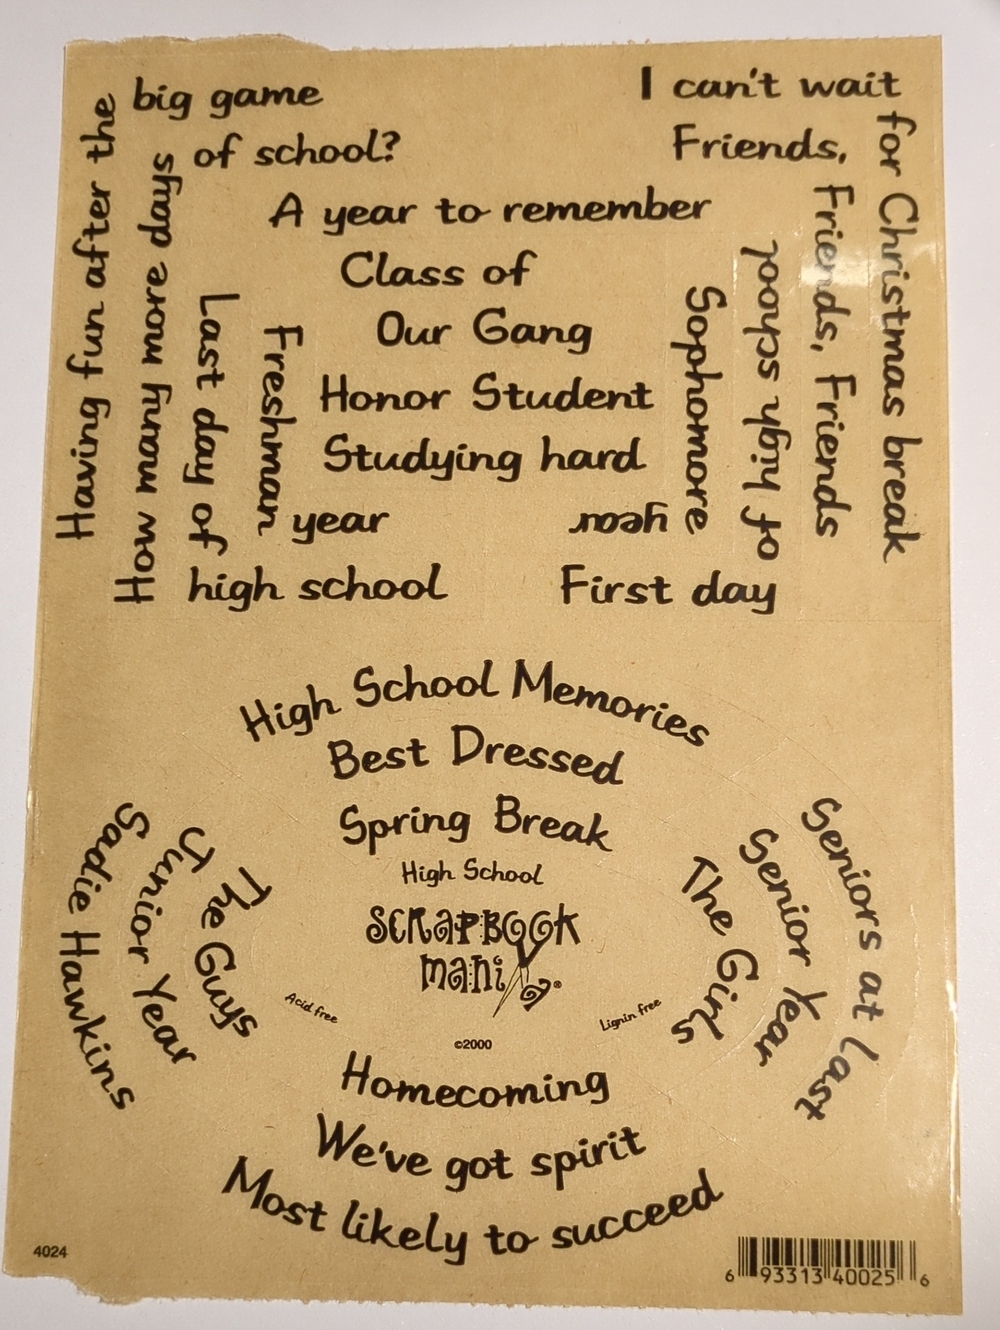 Having fun after the big game
How many more days of school?
I can't wait for Christmas break
Friends, Friends, Friends
A year to remember
Class of
Our Gang
Honor Student
Studying hard
Freshman year
Sophomore year
Last day of high school
First day of high school
High School Memories
Best Dressed
Spring Break
High School
SCRAPBOOK
mania®
Acid free
Lignin free
©2000
Sadie Hawkins
Junior Year
The Guys
The Girls
Senior Year
Seniors at Last
Homecoming
We've got spirit
Most likely to succeed
4024
6 93313 40025 6